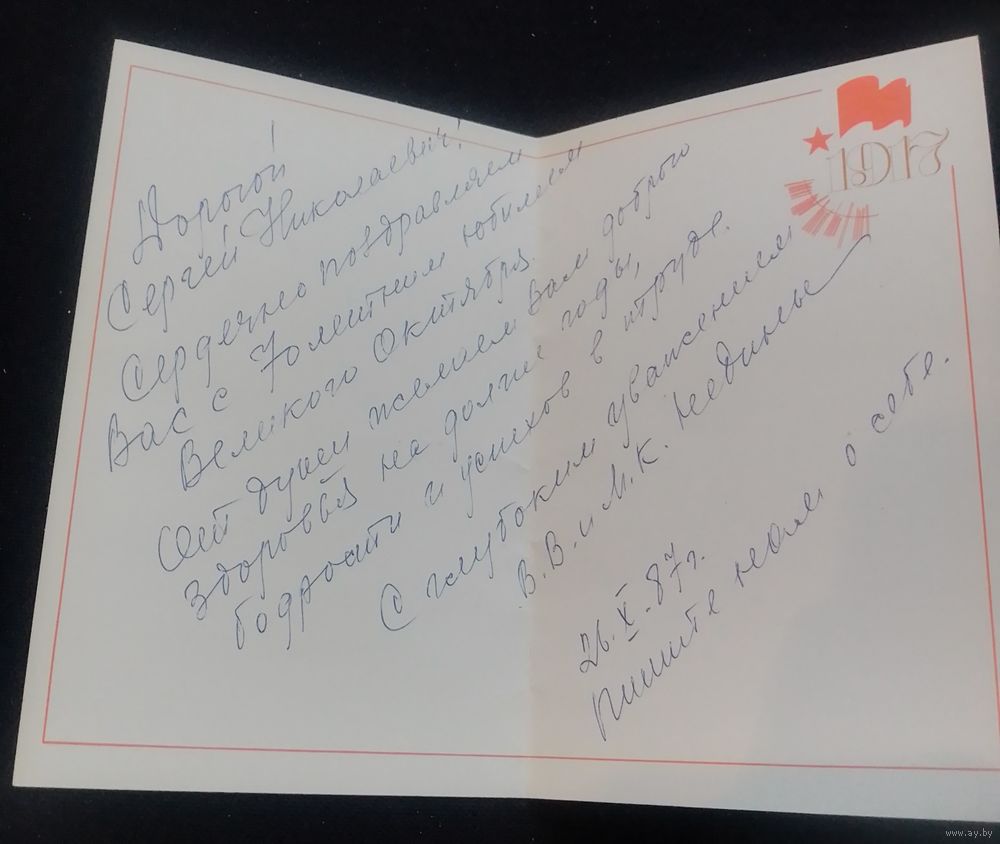 1917
Дорогой
Сергей Николаевич!
Сердечно поздравляем
Вас с 70летним юбилеем
Великого Октября.
От души желаем Вам доброго
здоровья на долгие годы,
бодрости и успехов в труде.
С глубоким уважением
В.В. и М.К.
26.X.-87г.
Пишите нам о себе.
www.ay.by